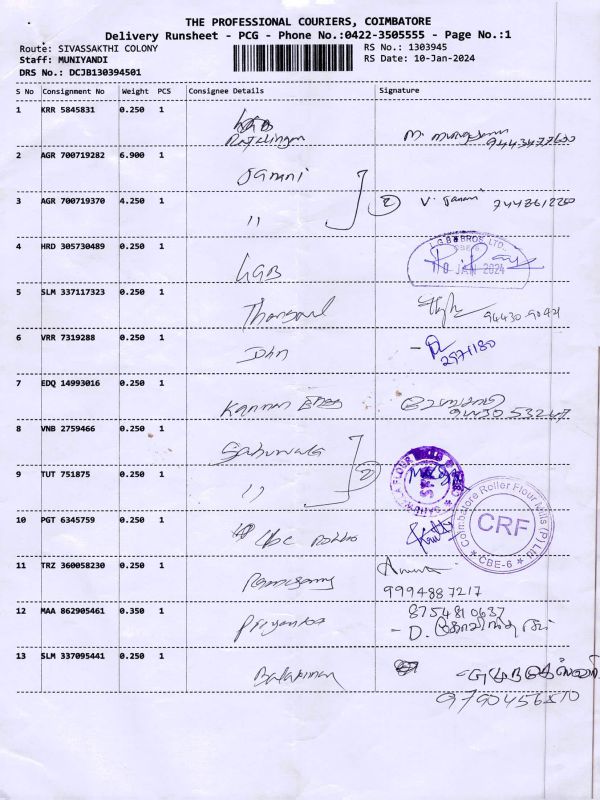 THE PROFESSIONAL COURIERS, COIMBATORE
Delivery Runsheet - PCG - Phone No.:0422-3505555 - Page No.:1
Route: SIVASSAKTHI COLONY RS No.: 1303945
Staff: MUNIYANDI RS Date: 10-Jan-2024
DRS No.: DCJB130394501
S No Consignment No Weight PCS Consignee Details Signature
1 KRR 5845831 0.250 1
2 AGR 700719282 6.900 1 Janani
3 AGR 700719370 4.250 1 " (2) V. Janani
4 HRD 305730489 0.250 1 LGB
10 JAN 2024
5 SLM 337117323 0.250 1
6 VRR 7319288 0.250 1 John
2971180
7 EDQ 14993016 0.250 1 Kannan Engg
8 VNB 2759466 0.250 1
9 TUT 751875 0.250 1 " (2)
10 PGT 6345759 0.250 1
Coimbatore Roller Flour Mills (P) Ltd
CRF
* CBE-6 *
11 TRZ 360058230 0.250 1 Ramasamy
9994887217
12 MAA 862905461 0.350 1 Priyanka 8754810637
13 SLM 337095441 0.250 1